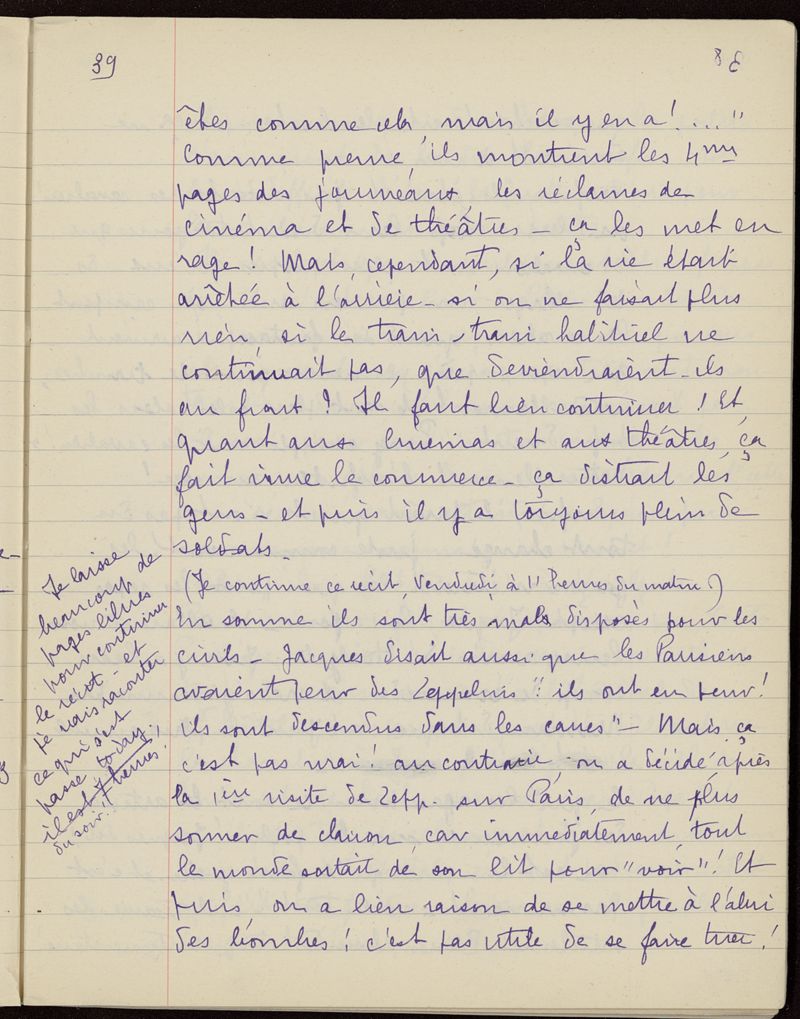 39
38
êtes comme cela, mais il y en a! ..."
Comme preuve, ils montrent les 4mes
pages des journeaux, les réclames de
cinéma et de théâtres – ça les met en
rage! Mais, cependant, si la vie était
arrêtée à l'arrière – si on ne faisait plus
rien, si le train-train habituel ne
continuait pas, que deviendraient-ils
au front? Il faut bien continuer! Et,
quant aux cinémas et aux théâtres, ça
fait vivre le commerce – ça distrait les
gens – et puis il y a toujours plein de
soldats.
(Je continue ce récit, Vendredi à 11 heures du matin.)
En somme ils sont très mal disposés pour les
civils – Jacques disait aussi que les Parisiens
avaient peur des Zeppelins "ils ont eu peur!
ils sont descendus dans les caves" – Mais ça
c'est pas vrai! au contraire, on a décidé, après
la 1ère visite de Zepp. sur Paris, de ne plus
sonner de clairon, car immédiatement, tout
le monde sortait de son lit pour "voir"! Et
puis, on a bien raison de se mettre à l'abri
des bombes! c'est pas utile de se faire tuer!
Je laisse
beaucoup de
pages libres
pour continuer
le récit – et
je vais raconter
ce qui s'est
passé today.
il est 7 heures!
du soir!!